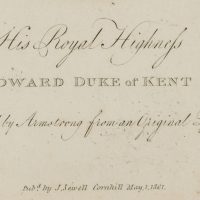 His Royal Highness
DWARD DUKE of KENT
by Armstrong from an Original
Pub.d by J. Sewell Cornhill May, 1, 1801.